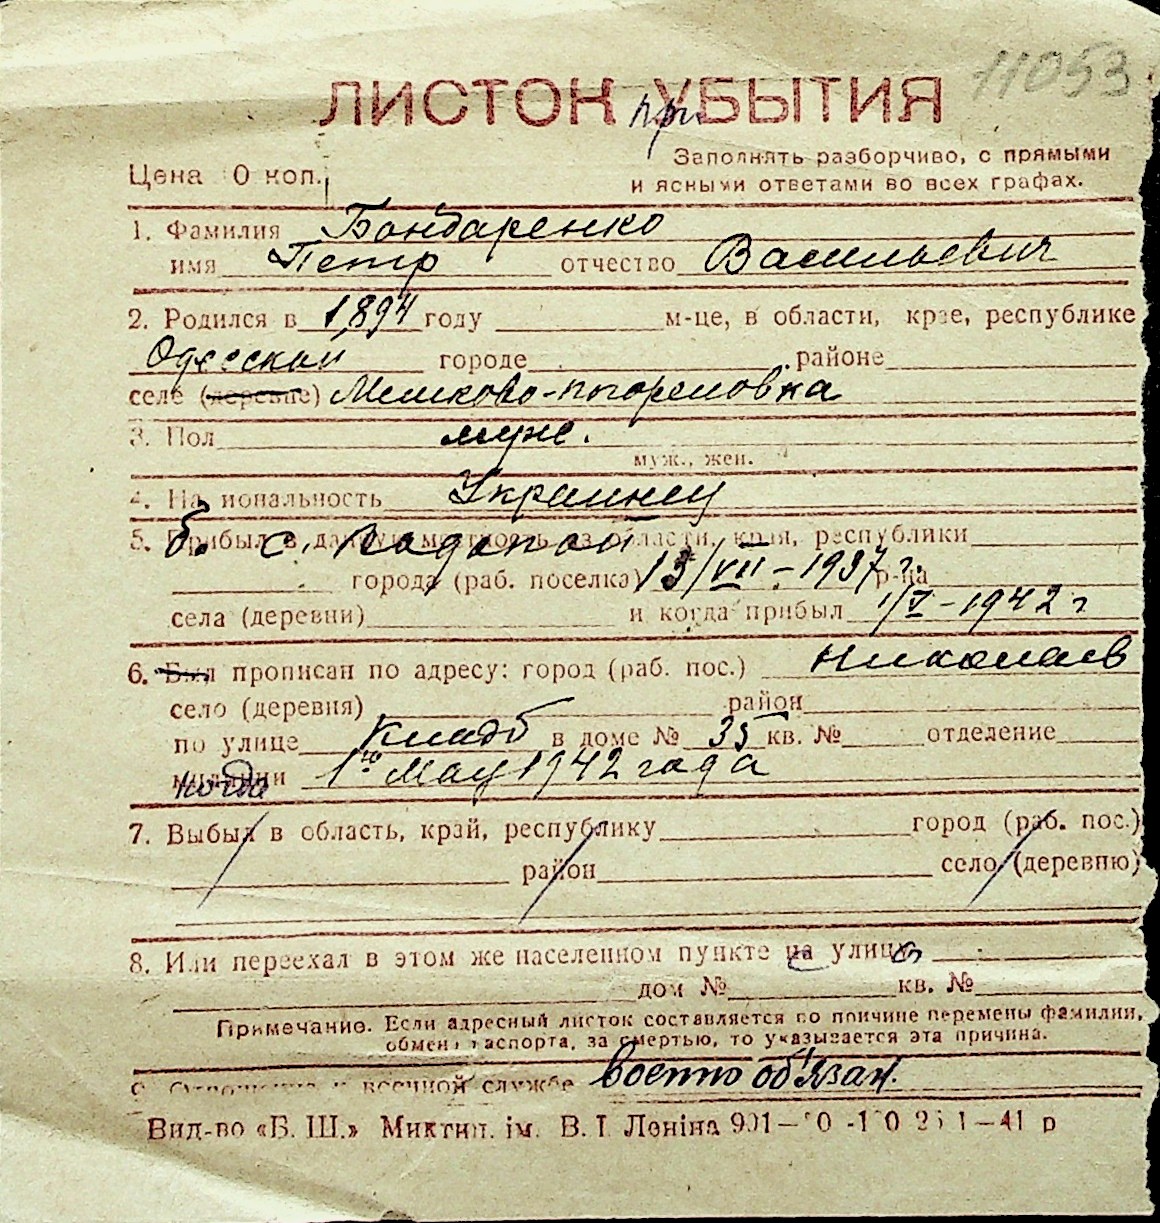 11053
ЛИСТОК УБЫТИЯ
при
Цена 0 коп.
Заполнять разборчиво, с прямыми
и ясными ответами во всех графах.
1. Фамилия Бондаренко
имя Петр отчество Васильевич
2. Родился в 1894 году м-це, в области, крае, республике
Одесской городе районе
селе (деревне) Мешково-Погореловка
3. Пол муж.
муж., жен.
4. Национальность Украинец
5. Прибыл в данную местность из области, края, республики
б. с. Водопой
города (раб. поселка) 13/VII-1937 г. р-на
села (деревни) и когда прибыл 1/V-1942 г
6. Был прописан по адресу: город (раб. пос.) Николаев
село (деревня) район
по улице Кладб в доме № 35 кв. № отделение
милиции когда 1го Мау 1942 года
7. Выбыл в область, край, республику город (раб. пос.)
район село (деревню)
8. Или переехал в этом же населенном пункте на улицу
дом № кв. №
Примечание. Если адресный листок составляется по причине перемены фамилии,
обмена паспорта, за смертью, то указывается эта причина.
9. Отношение к военной службе военно об'язан.
Вид-во «Б. Ш.» Миктип. ім. В. І Леніна 901—